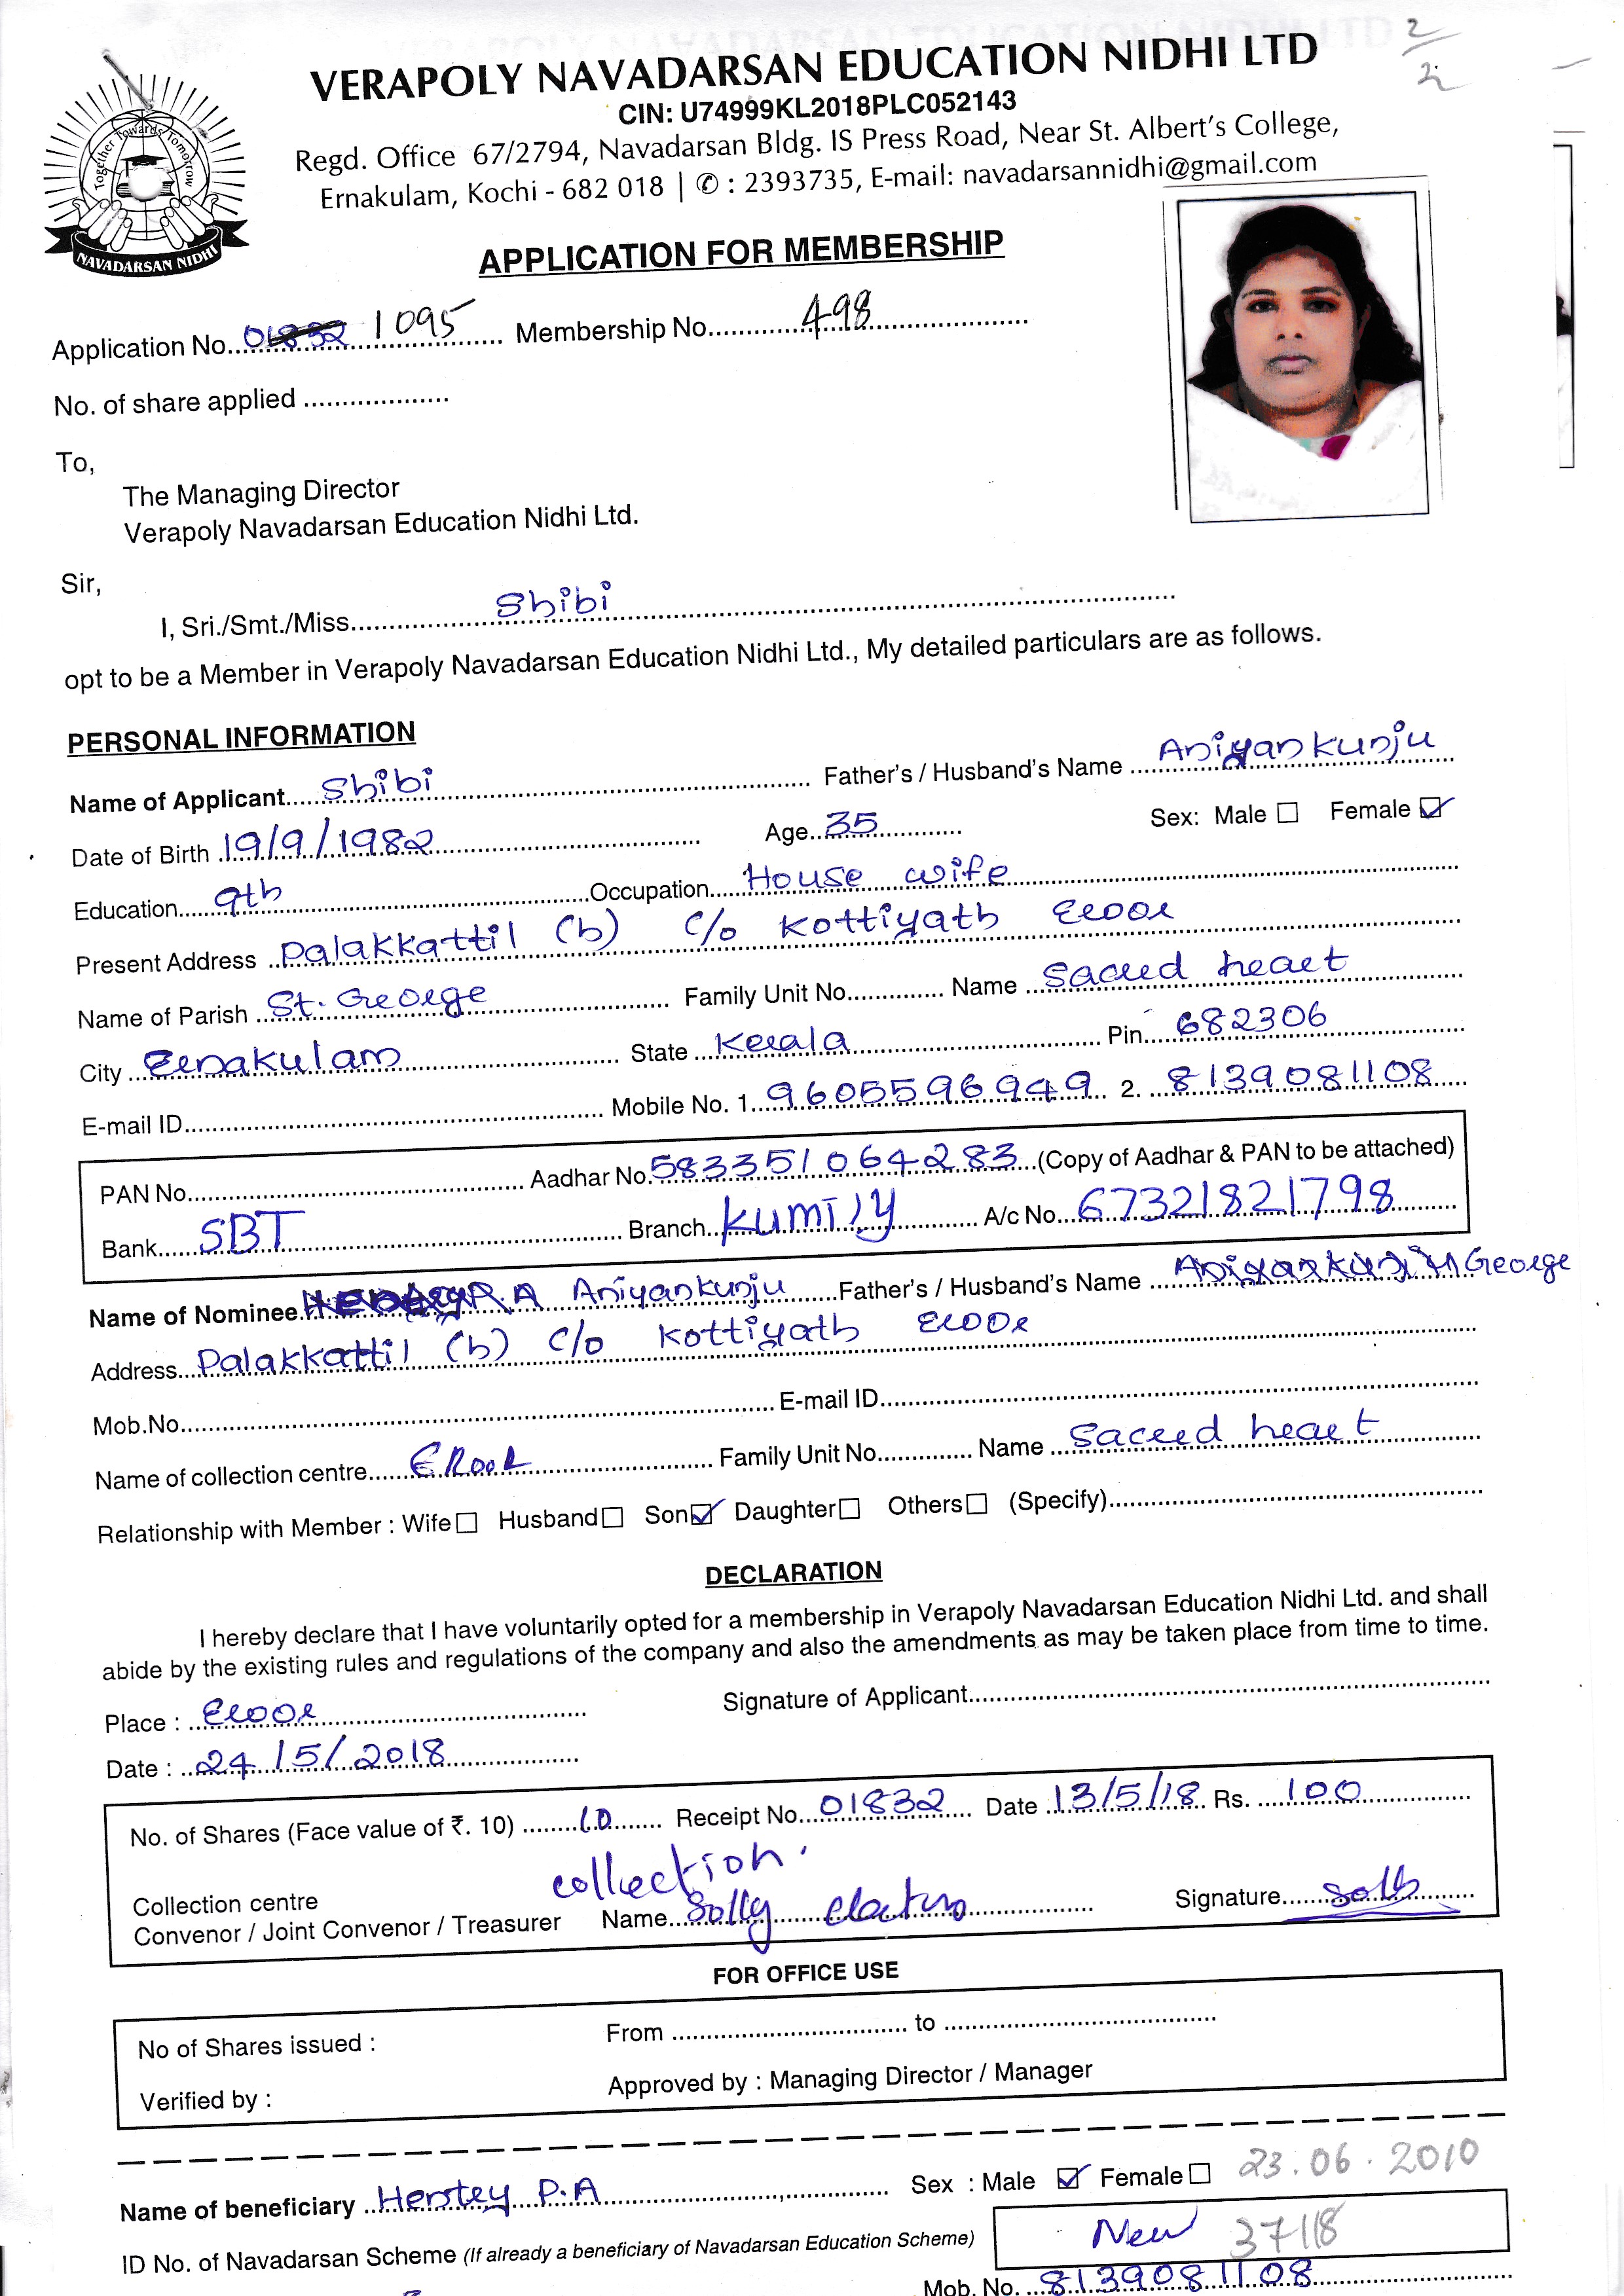 VERAPOLY NAVADARSAN EDUCATION NIDHI LTD
2/2
CIN: U74999KL2018PLC052143
Regd. Office 67/2794, Navadarsan Bldg. IS Press Road, Near St. Albert's College,
Ernakulam, Kochi - 682 018 | ✆ : 2393735, E-mail: navadarsannidhi@gmail.com
Together Towards Tomorrow
NAVADARSAN NIDHI
APPLICATION FOR MEMBERSHIP
Application No. 01832 1095 Membership No. 498
No. of share applied
To,
The Managing Director
Verapoly Navadarsan Education Nidhi Ltd.
Sir,
I, Sri./Smt./Miss. Shibi
opt to be a Member in Verapoly Navadarsan Education Nidhi Ltd., My detailed particulars are as follows.
PERSONAL INFORMATION
Name of Applicant. Shibi Father's / Husband's Name Aniyankunju
Date of Birth 19/9/1982 Age. 35 Sex: Male ☐ Female ☑
Education. 9th Occupation. House wife
Present Address Palakkattil (h) C/o Kottiyath Eroor
Name of Parish St. George Family Unit No. Name Sacred heart
City Ernakulam State Kerala Pin. 682306
E-mail ID. Mobile No. 1. 9605596949 2. 8139081108
PAN No. Aadhar No. 583351064283 (Copy of Aadhar & PAN to be attached)
Bank. SBT Branch. Kumily A/c No. 67321821798
Name of Nominee. P.A Aniyankunju Father's / Husband's Name George
Address. Palakkattil (h) C/o Kottiyath Eroor
Mob.No. E-mail ID.
Name of collection centre. ERooR Family Unit No. Name Sacred heart
Relationship with Member : Wife ☐ Husband ☐ Son ☑ Daughter ☐ Others ☐ (Specify).
DECLARATION
I hereby declare that I have voluntarily opted for a membership in Verapoly Navadarsan Education Nidhi Ltd. and shall
abide by the existing rules and regulations of the company and also the amendments as may be taken place from time to time.
Place : Eroor Signature of Applicant.
Date : 24/5/2018
No. of Shares (Face value of ₹. 10) 10 Receipt No. 01832 Date 13/5/18 Rs. 100
collection.
Collection centre
Convenor / Joint Convenor / Treasurer Name. Solly Signature. Solly
FOR OFFICE USE
No of Shares issued : From to
Verified by : Approved by : Managing Director / Manager
Name of beneficiary P.A Sex : Male ☑ Female ☐ 23.06.2010
ID No. of Navadarsan Scheme (If already a beneficiary of Navadarsan Education Scheme) New 37/18
Mob. No. 8139081108